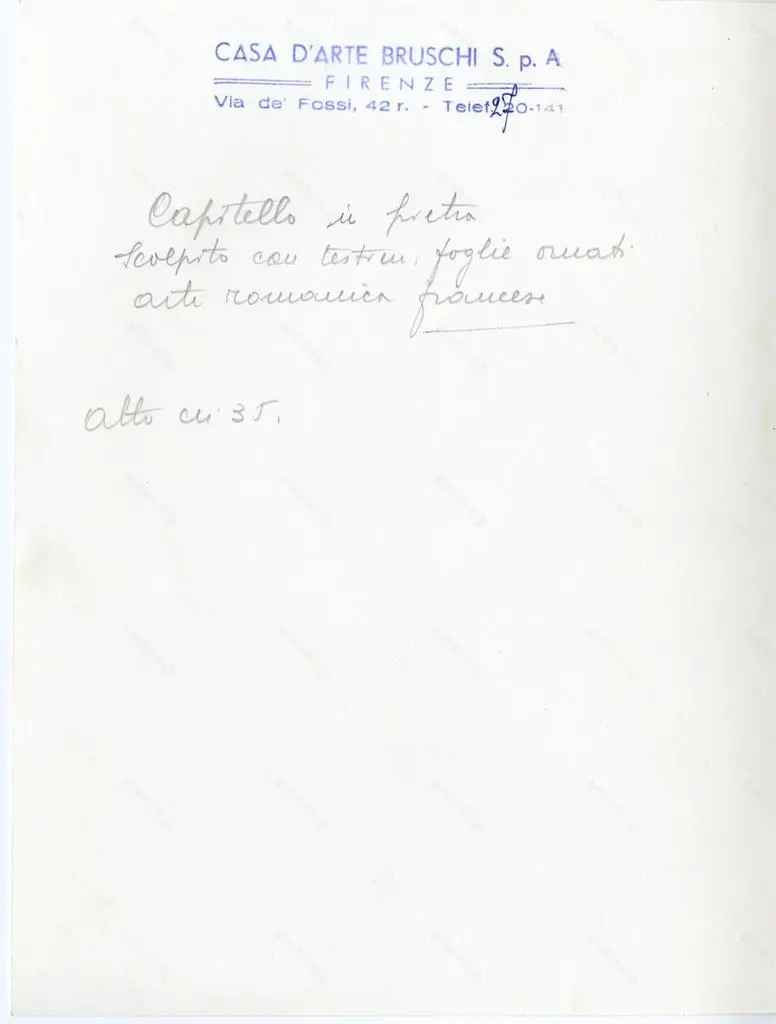 CASA D'ARTE BRUSCHI S. p. A
FIRENZE
Via de' Fossi, 42 r. - Telef. 270-141
Capitello in pietra
scolpito con testine, foglie ornati
arte romanica francese
alto cm. 35.